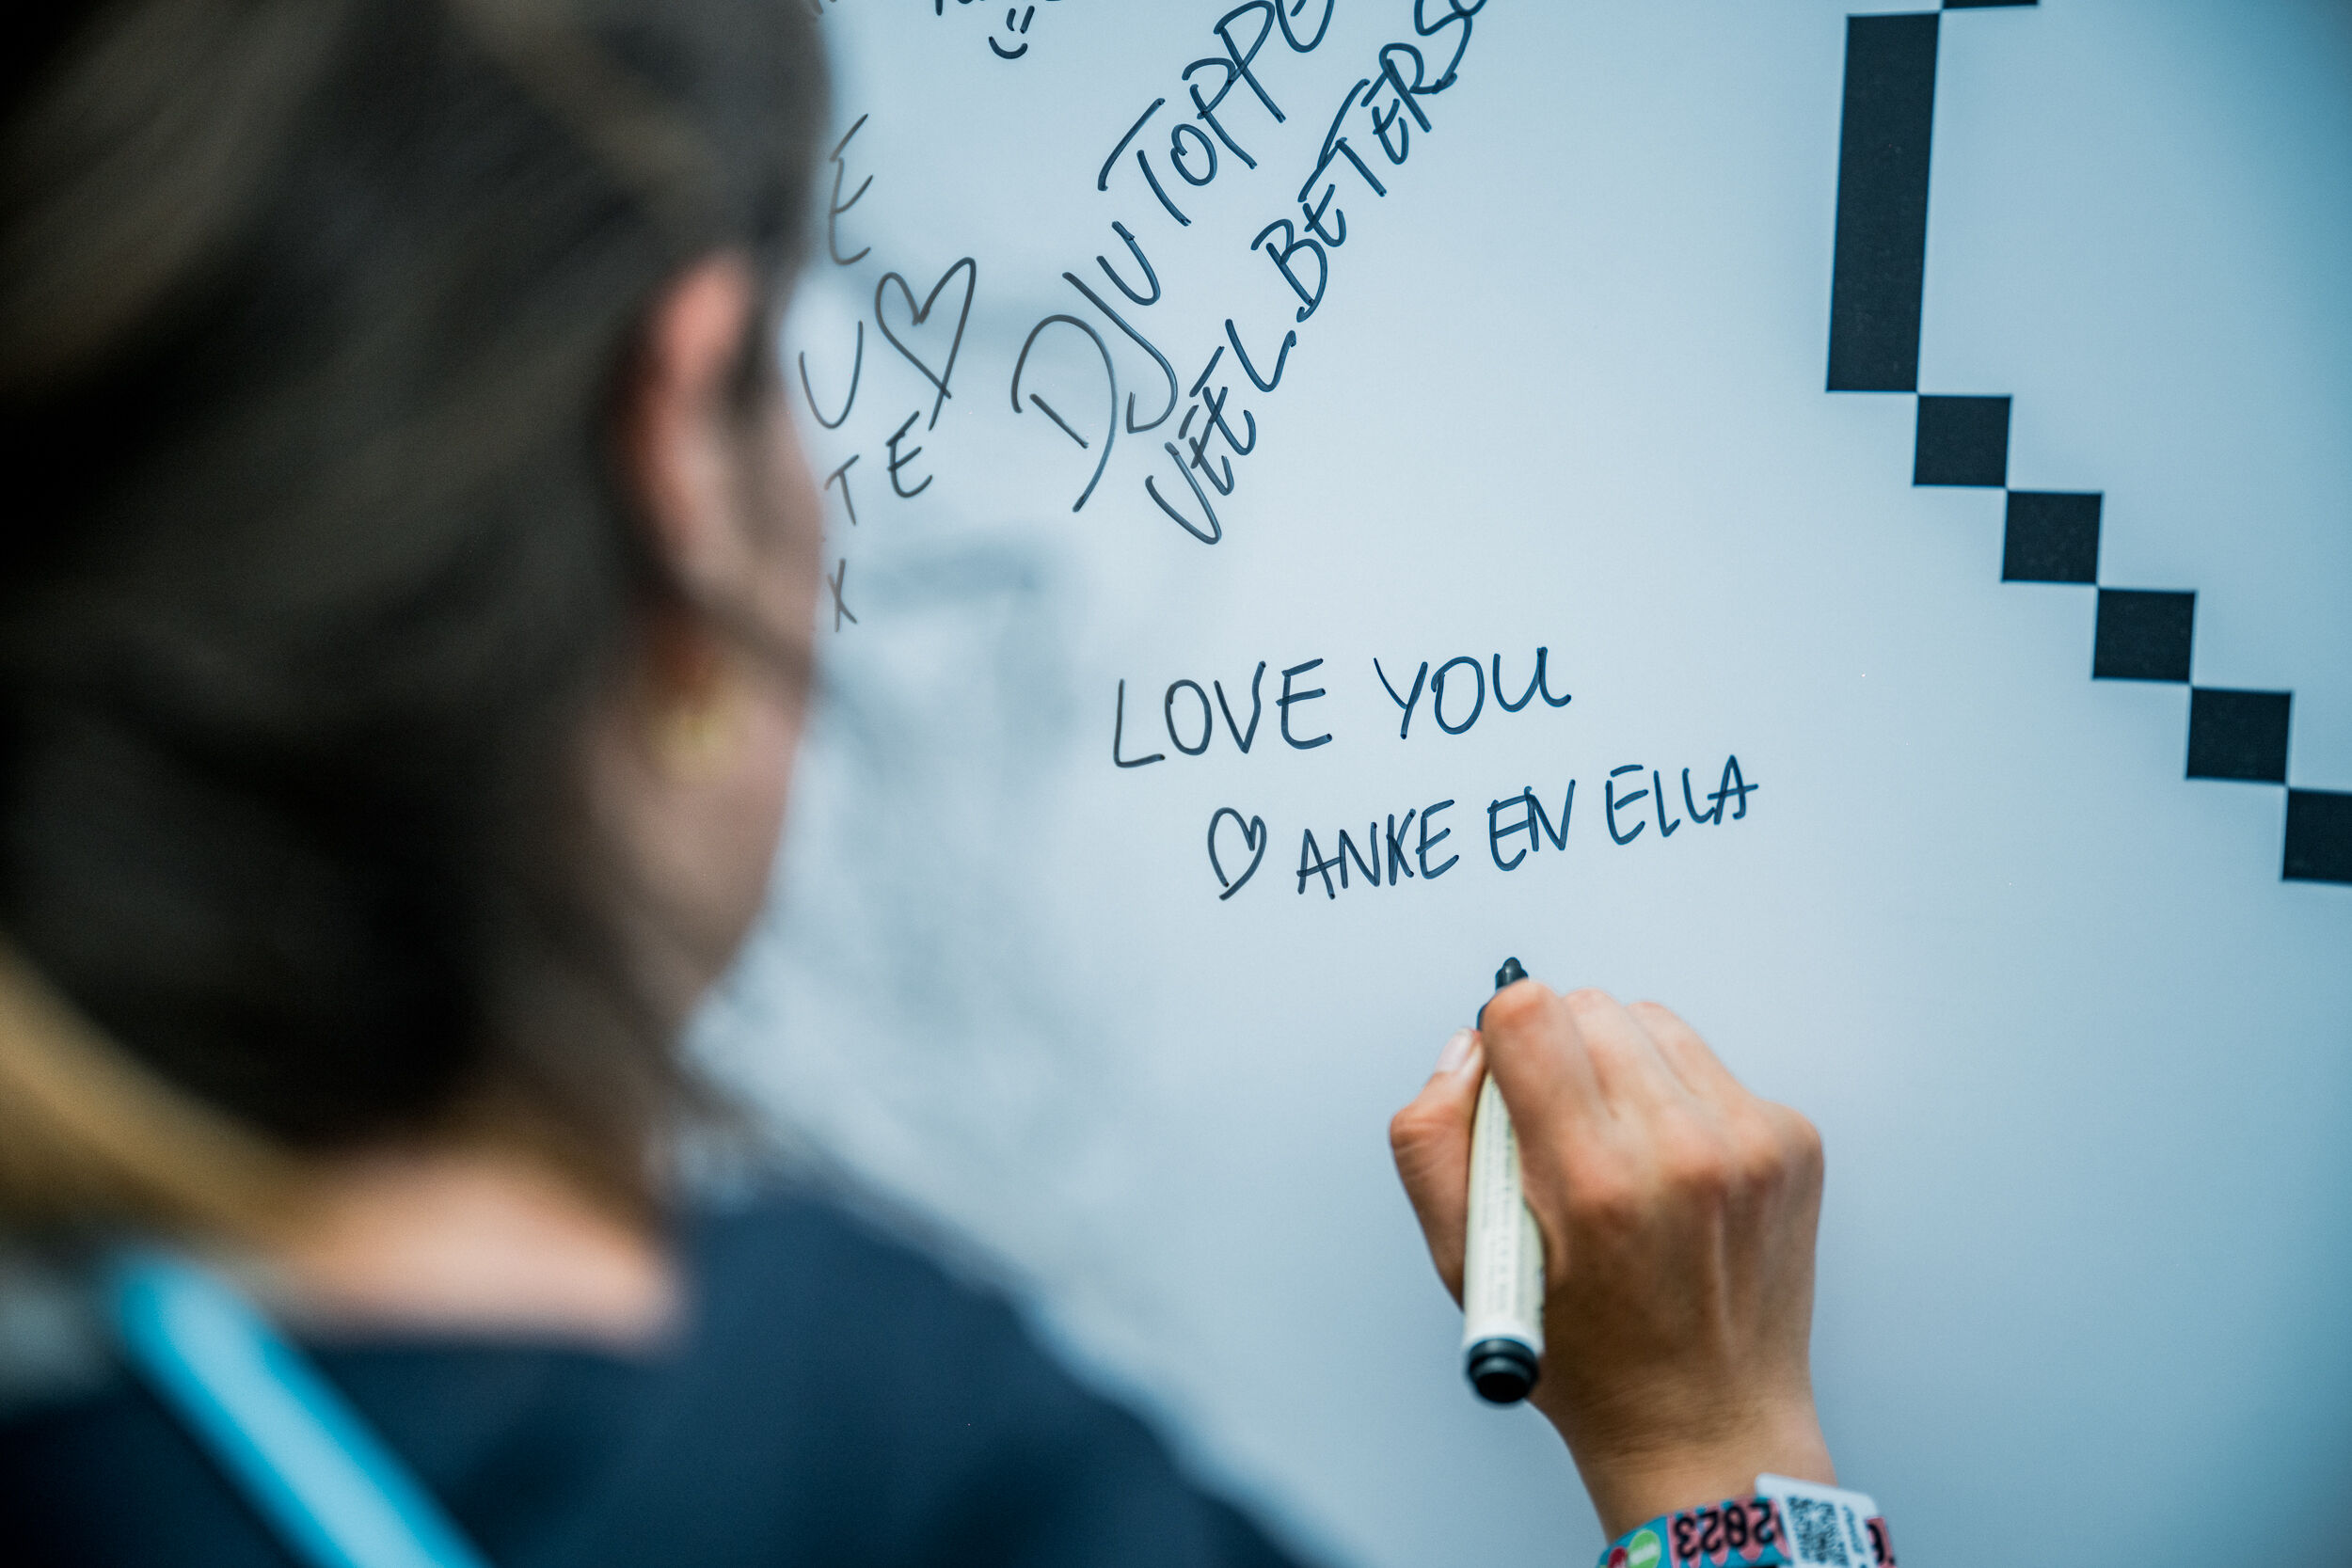 DJU TOPPE
VEEL BETERSC
LOVE YOU
♡ ANKE EN ELLA
2023